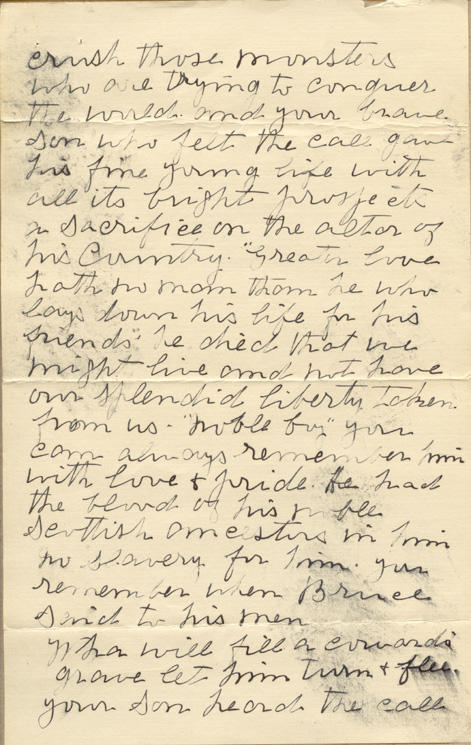 crush those monsters
who are trying to conquer
the world. and your brave
son who felt the call gave
his fine young life with
all its bright prospects
a sacrifice on the altar of
his Country. "Greater love
hath no man than he who
lays down his life for his
friends" he died that we
might live and not have
our splendid liberty taken
from us. "noble boy" you
can always remember him
with love & pride. He had
the blood of his noble
Scottish ancestors in him
no slavery for him. you
remember when Bruce
said to his men
Wha will fill a cowards
grave let him turn & flee.
your son heard the call